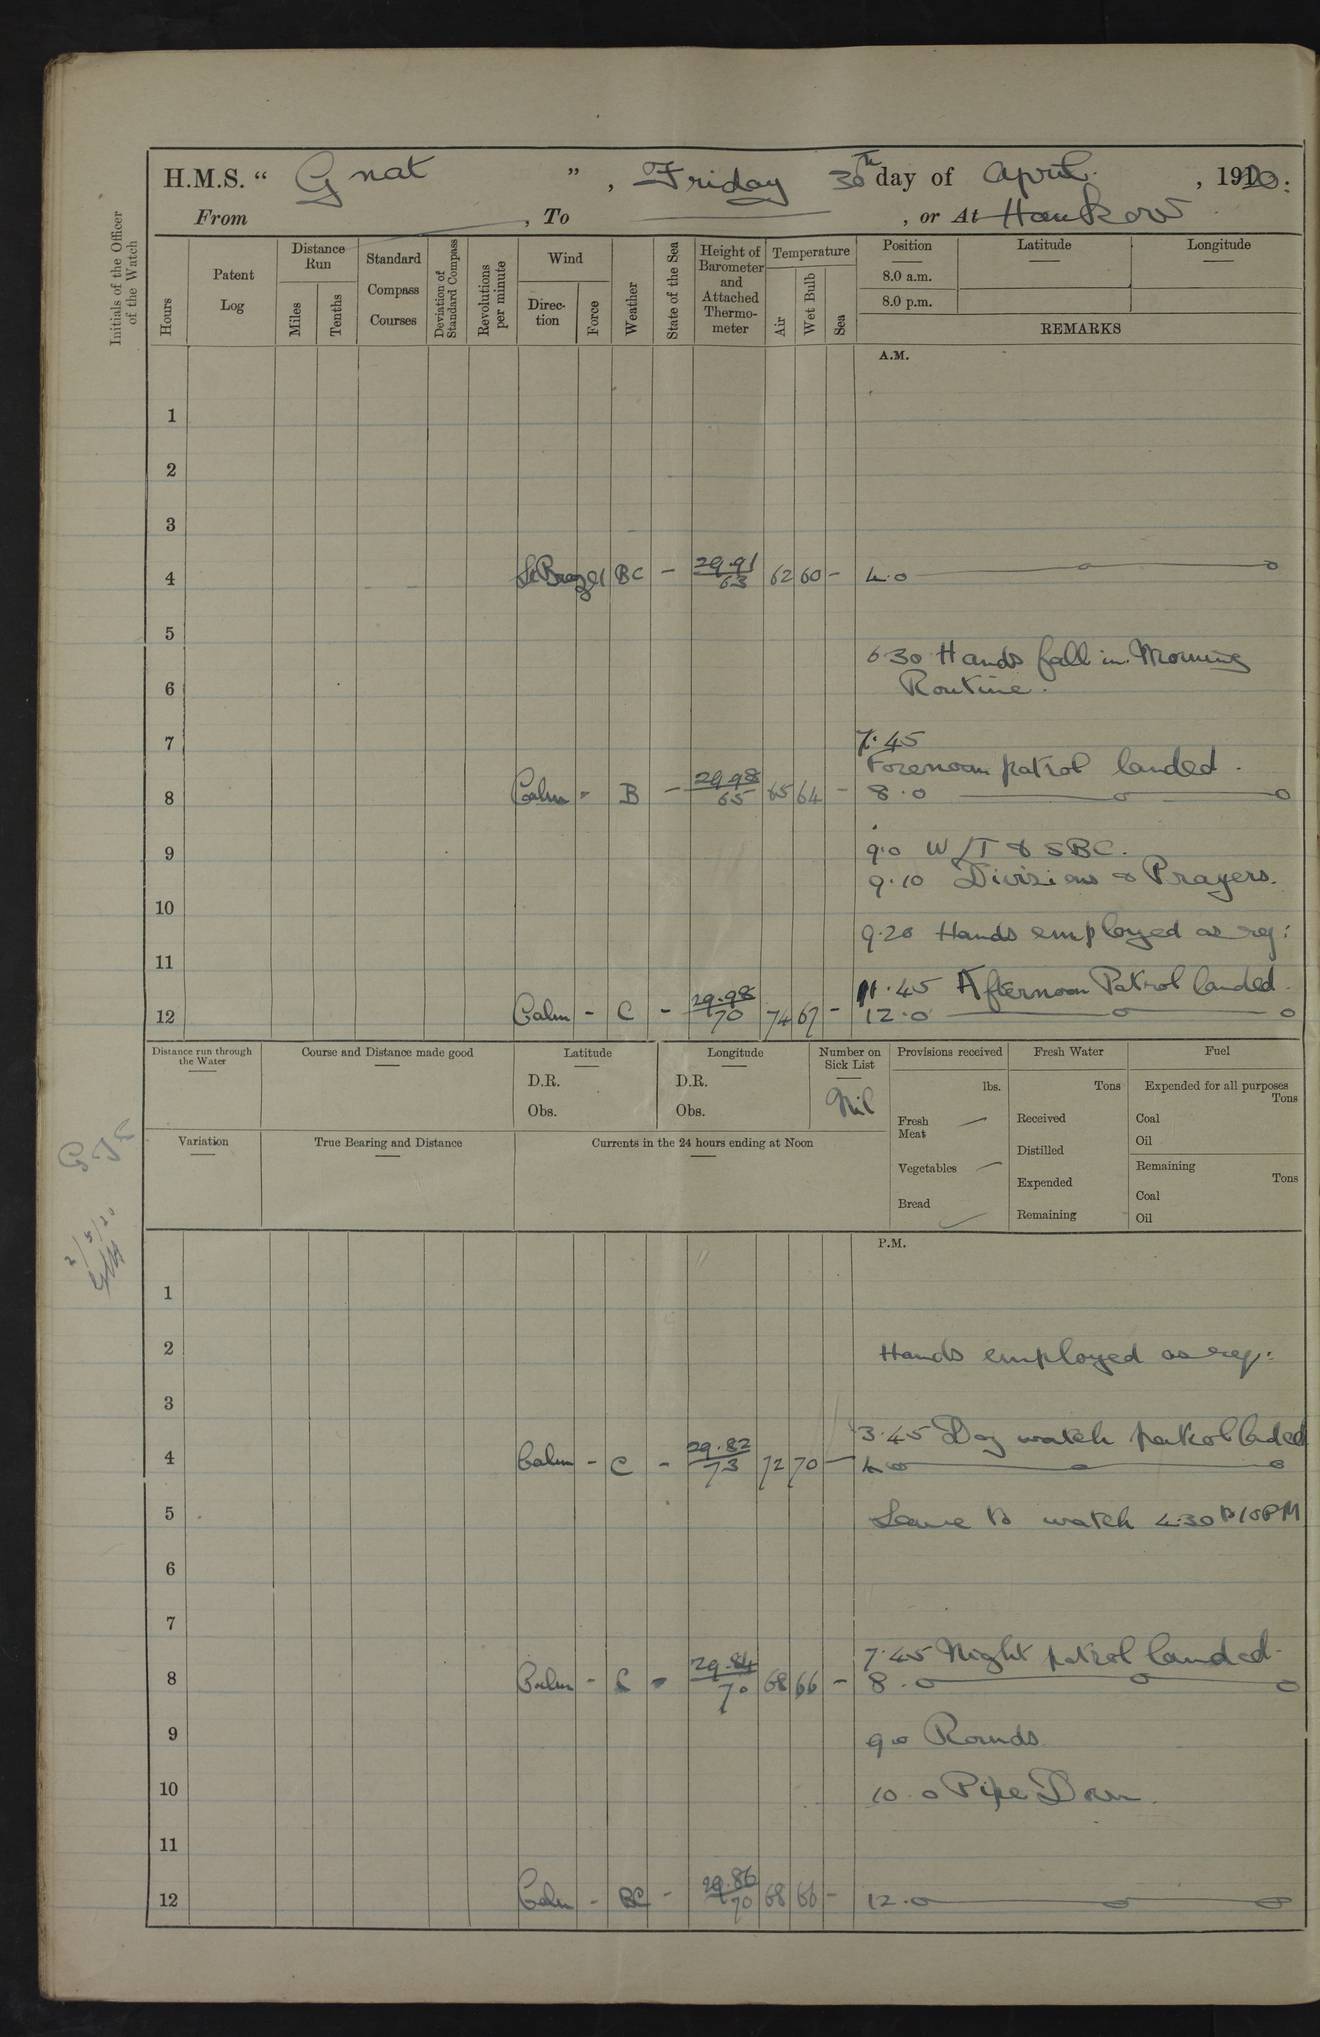 H.M.S. “ Gnat ” , Friday 30th day of April. , 1920.
From , To , or At Hankow
Initials of the Officer of the Watch
Hours
Patent Log
Distance Run
Miles
Tenths
Standard Compass Courses
Deviation of Standard Compass
Revolutions per minute
Wind
Direction
Force
Weather
State of the Sea
Height of Barometer and Attached Thermometer
Temperature
Air
Wet Bulb
Sea
Position
8.0 a.m.
8.0 p.m.
Latitude
Longitude
REMARKS
A.M.
1
2
3
4 BC - 29.91 63 62 60 - 4.0
5
6.30 Hands fall in. Morning
6 Routine.
7 7.45
Forenoon patrol landed.
8 Calm - B - 29.98 65 65 64 - 8.0
9 9.0 W/T & SBC.
9.10 Divisions & Prayers.
10
9.20 Hands employed as req:
11
11.45 Afternoon Patrol landed.
12 Calm - C - 29.98 70 74 67 - 12.0
Distance run through the Water
Course and Distance made good
Latitude
D.R.
Obs.
Longitude
D.R.
Obs.
Number on Sick List
Nil
Provisions received
lbs.
Fresh Meat
Vegetables
Bread
Fresh Water
Tons
Received
Distilled
Expended
Remaining
Fuel
Expended for all purposes
Tons
Coal
Oil
Remaining
Tons
Coal
Oil
Variation
True Bearing and Distance
Currents in the 24 hours ending at Noon
2/5/20
P.M.
1
2 Hands employed as req:
3
3.45 Dog watch patrol laded
4 Calm - C - 29.82 73 72 70 - 4.0
5 Leave to watch 4.30 to 10 PM
6
7
7.45 Night patrol landed.
8 Calm - C - 29.84 70 68 66 - 8.0
9 9.0 Rounds
10 10.0 Pipe Down.
11
12 Calm - BC - 29.86 70 68 66 - 12.0